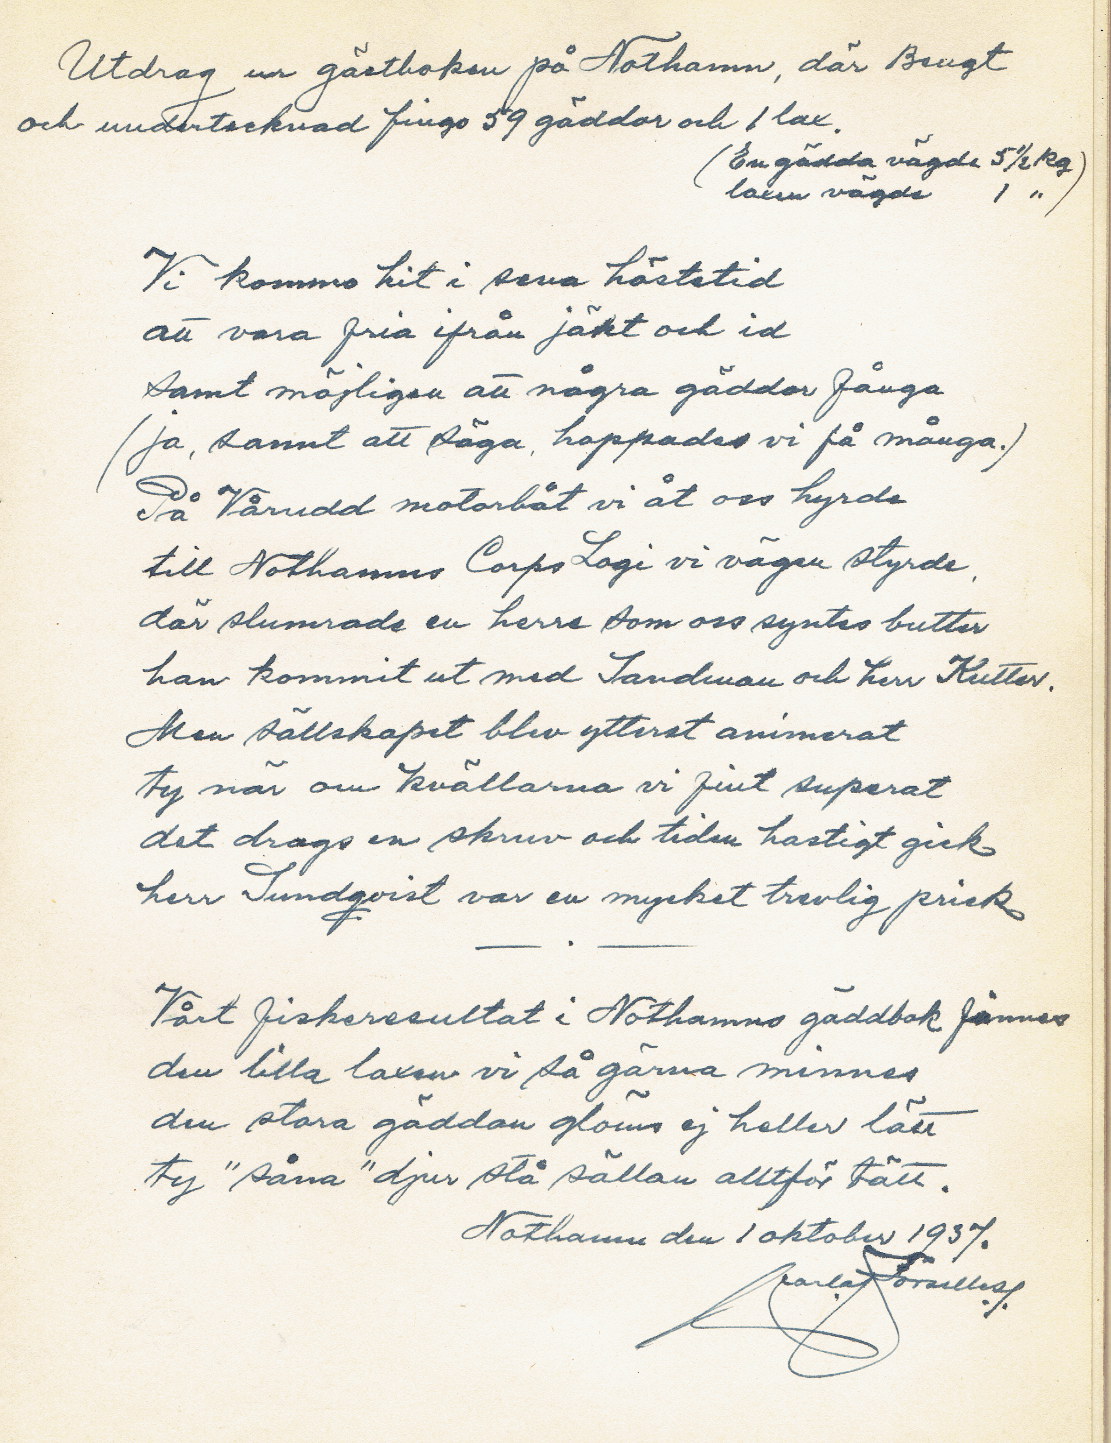 Utdrag ur gästboken på Nothamn, där Bengt
och undertecknad fingo 59 gäddor och 1 lax.
(En gädda vägde 5 1/2 kg
laxen vägde 1 ")
Vi kommo hit i sena höstetid
att vara fria ifrån jäkt och id
samt möjligen att några gäddor fånga
(ja, sannt att säga, hoppades vi få många.)
På Vårudd motorbåt vi åt oss hyrde
till Nothamns Corps Logi vi vägen styrde,
där slumrade en herre som oss syntes butter
han kommit ut med Sandman och herr Kutter.
Men sällskapet blev ytterst animerat
ty när om kvällarna vi fint superat
det drogs en skruv och tiden hastigt gick
herr Sundqvist var en mycket trevlig prick
Vårt fiskeresultat i Nothamns gäddbok finnes
den lilla laxen vi så gärna minnes
den stora gäddan glöms ej heller lätt
ty "såna" djur stå sällan alltför tätt.
Nothamn den 1 oktober 1937.